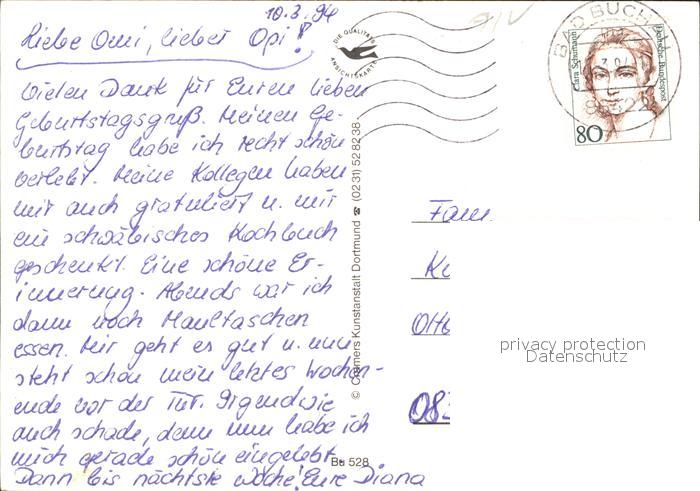 10.3.94
Liebe Omi, lieber Opi!
Vielen Dank für Euren lieben
Geburtstagsgruß. Meinen Ge-
burtstag habe ich recht schön
verlebt. Meine Kollegen haben
mir auch gratuliert u. mir
ein schwäbisches Kochbuch
geschenkt. Eine schöne Er-
innerung. Abends war ich
dann noch Maultaschen
essen. Mir geht es gut u. nun
steht schon mein letztes Wochen-
ende vor der Tür. Irgendwie
auch schade, denn nun habe ich
mich gerade schön eingelebt.
Dann bis nächste Woche! Eure Diana
DIE QUALITÄTS
ANSICHTSKARTE
© Cramers Kunstanstalt Dortmund ☎ (0231) 528238
Bu 528
BAD BUCH
Clara Schumann
Deutsche Bundespost
80
Fam.
08
privacy protection
Datenschutz